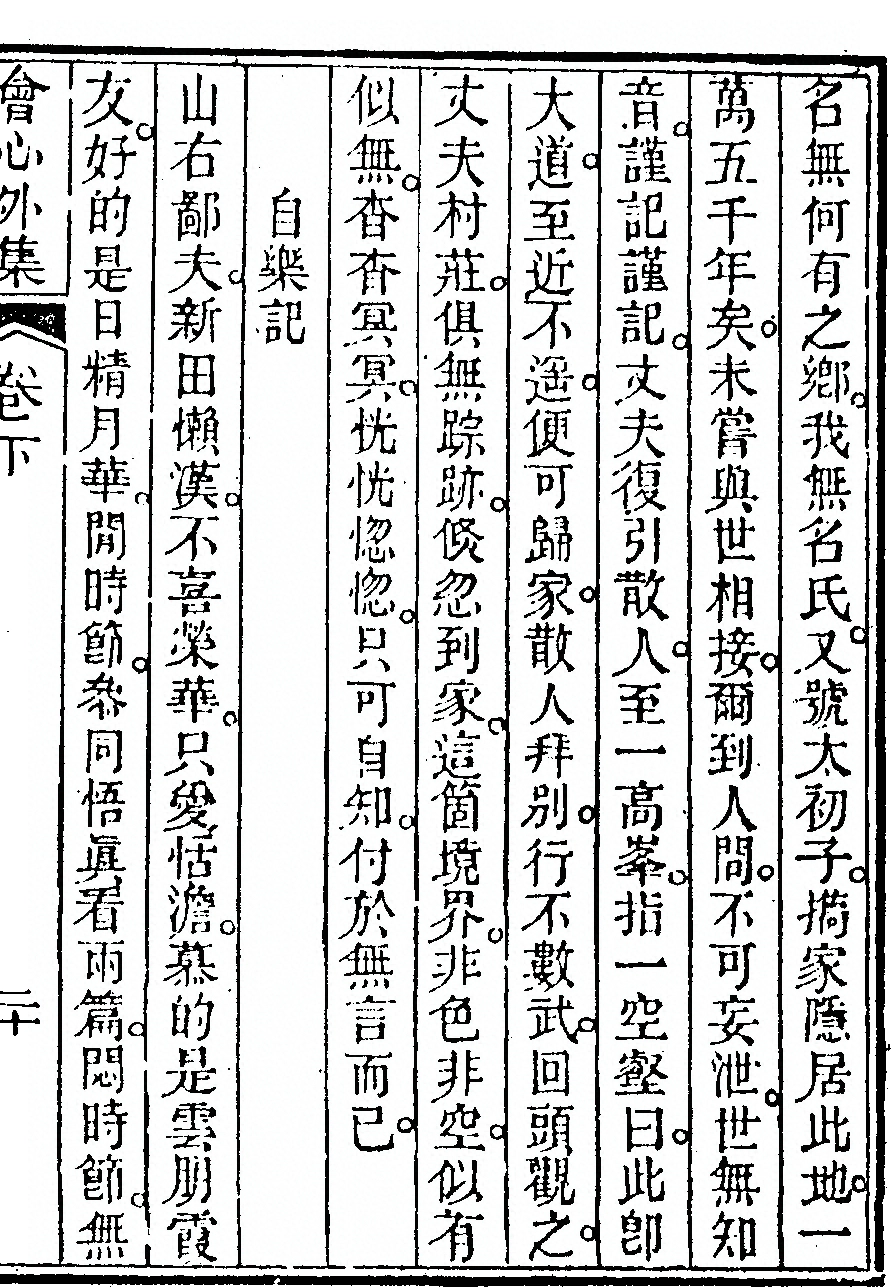 名無何有之鄉我無名氏又號太初子擕家隱居此地一
萬五千年矣未嘗與世相接爾到人間不可妄泄世無知
音謹記謹記丈夫復引散人至一高峯指一空壑曰此卽
大道至近不遥便可歸家散人拜別行不數武回頭觀之
丈夫村莊俱無踪跡倐忽到家這箇境界非色非空似有
似無杳杳冥冥恍恍惚惚只可自知付於無言而已
自樂記
山右鄙夫新田懶漢不喜榮華只愛恬澹慕的是雲朋霞
友好的是日精月華閒時節叅同悟眞看兩篇悶時節無
會心外集 卷下 二十